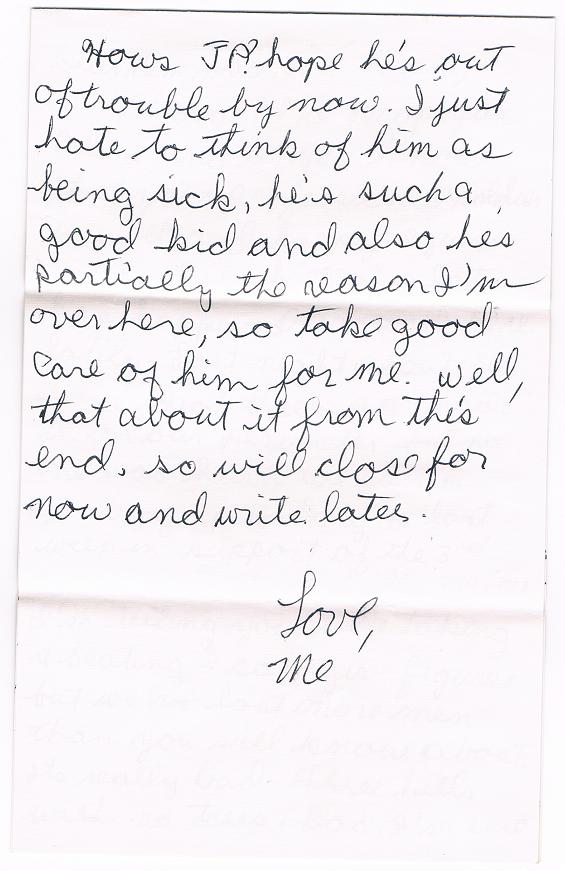 Hows JP? hope he's out
of trouble by now. I just
hate to think of him as
being sick, he's such a
good kid and also he's
partially the reason I'm
over here, so take good
care of him for me. well,
that about it from this
end, so will close for
now and write later.
Love,
Me